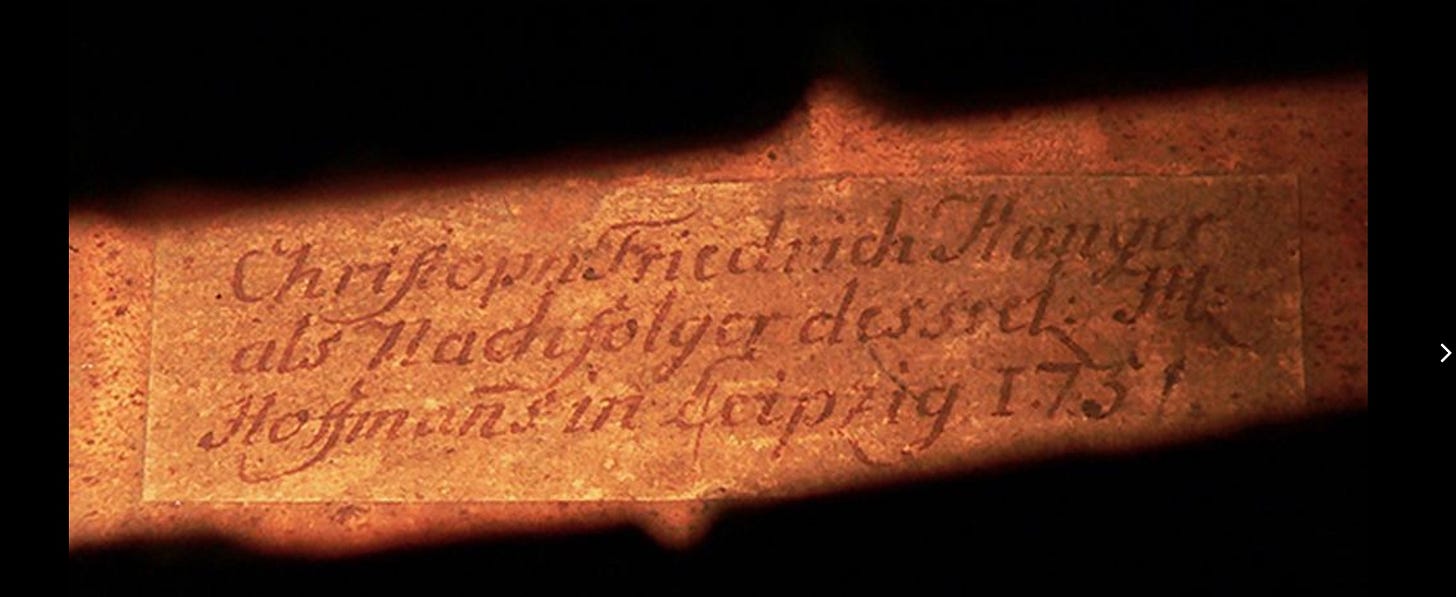 Christoph Friedrich Hunger
als Nachfolger des seel: M:
Hoffman̄s in Leipzig 1731